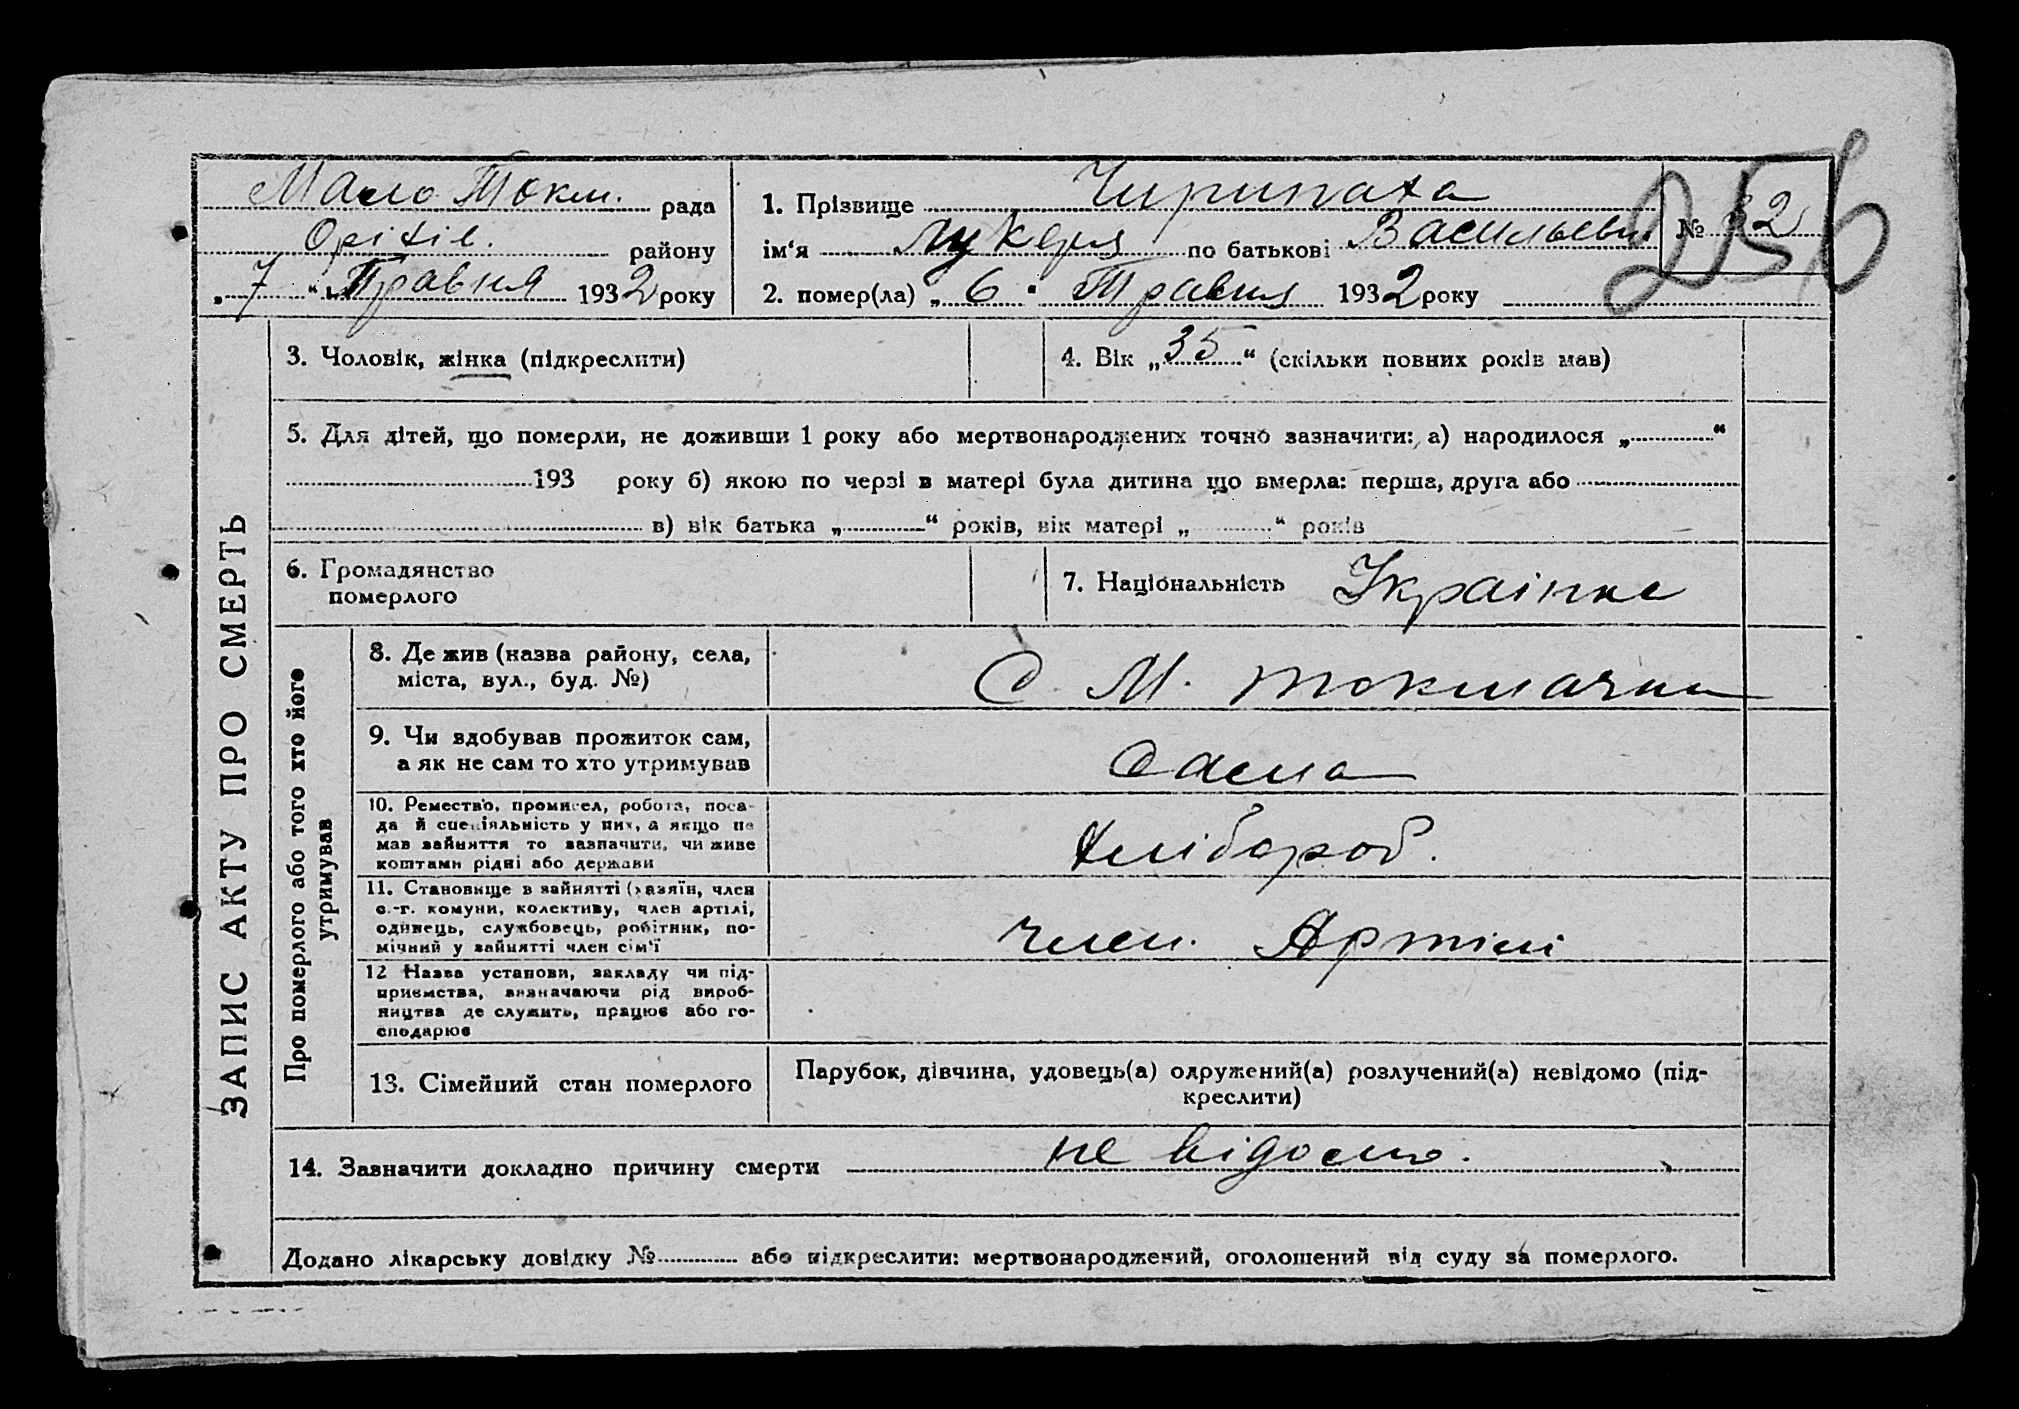 Мало Токм. рада
Оріхів. району
„ 7 “ Травня 1932 року
1. Прізвище Чирипаха
ім‘я Лукеря по батькові Васильевн
2. помер(ла) „ 6 “ Травня 1932 року
№ 32
256
ЗАПИС АКТУ ПРО СМЕРТЬ
3. Чоловік, жінка (підкреслити)
4. Вік „ 35 “ (скільки повних років мав)
5. Для дітей, що померли, не доживши 1 року або мертвонароджених точно зазначити: а) народилося „ “
193 року б) якою по черзі в матері була дитина що вмерла: перша, друга або
в) вік батька „ “ років, вік матері „ “ років
6. Громадянство
померлого
7. Національність Українка
Про померлого або того хто його
утримував
8. Де жив (назва району, села,
міста, вул., буд. №)
С М. Токмачка
9. Чи вдобував прожиток сам,
а як не сам то хто утримував
Сама
10. Ремество, промисел, робота, поса-
да й спеціяльність у них, а якщо не
мав зайняття то зазначити, чи живе
коштами рідні або держави
Хлібороб.
11. Становище в зайнятті (хазяїн, член
с.-г. комуни, колективу, член артілі,
одинець, службовець, робітник, по-
мічний у зайнятті член сім‘ї
член. Артілі
12 Назва установи, закладу чи під-
приємства, визначаючи рід вироб-
ництва де служить, працює або го-
сподарює
13. Сімейний стан померлого
Парубок, дівчина, удовець(а) одружений(а) розлучений(а) невідомо (під-
креслити)
14. Зазначити докладно причину смерти не відомо.
Додано лікарську довідку № або підкреслити: мертвонароджений, оголошений від суду за померлого.